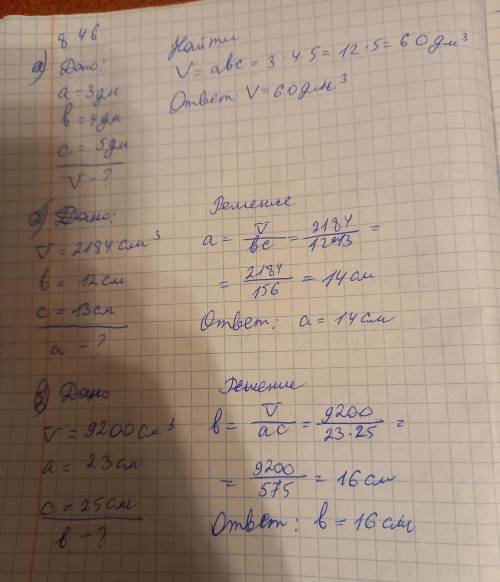 846
а) Дано:
a = 3дм
b = 4дм
c = 5дм
V - ?
Найти
V = abc = 3 · 4 · 5 = 12 · 5 = 60 дм³
Ответ: V = 60 дм³
б) Дано:
V = 2184 см³
b = 12 см
c = 13 см
a - ?
Решение
a = V/bc = 2184/12·13 =
= 2184/156 = 14 см
Ответ: a = 14 см
в) Дано
V = 9200 см³
a = 23 см
c = 25 см
b - ?
Решение
b = V/ac = 9200/23·25 =
= 9200/575 = 16 см
Ответ: b = 16 см